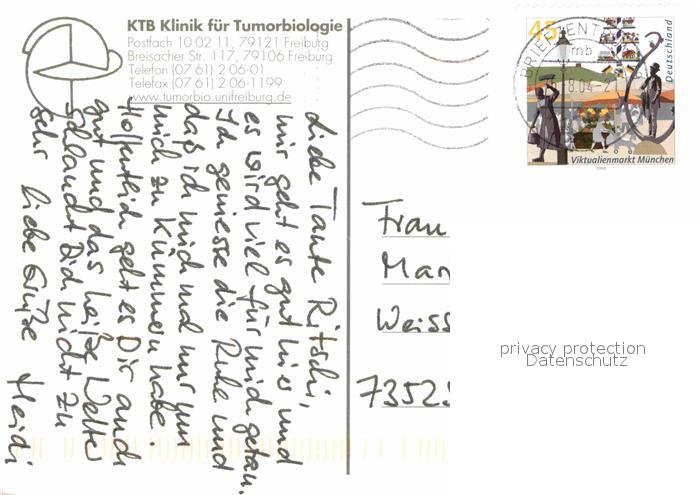 KTB Klinik für Tumorbiologie
Postfach 10 02 11, 79121 Freiburg
Breisacher Str. 117, 79106 Freiburg
Telefon (07 61) 2 06-01
Telefax (07 61) 2 06-1199
www.tumorbio.unifreiburg.de
Liebe Tante Ritschi,
mir geht es gut hier und
es wird viel für mich getan.
Ich geniesse die Ruhe und
das ich mich und nur um
mich zu kümmern habe.
Hoffentlich geht es Dir auch
gut und das heiße Wetter
schlaucht Dich nicht zu
sehr liebe Grüße Heidi
45
Deutschland
BRIEFZENT
mb
Viktualienmarkt München
Frau
Mar
Weiss
7352
privacy protection
Datenschutz